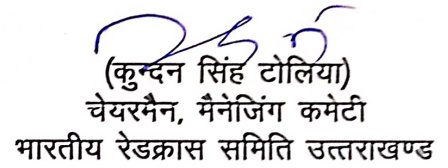 (कुन्दन सिंह टोलिया)
चेयरमैन, मैनेजिंग कमेटी
भारतीय रेडक्रास समिति उत्तराखण्ड